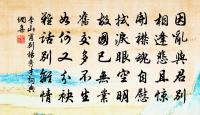 因亂與君別
相逢悲且驚
開襟魂自慰
拭淚眼空明
故國已無業
舊交多不生
如何又分袂
難話別離情
李山甫別楊秀才